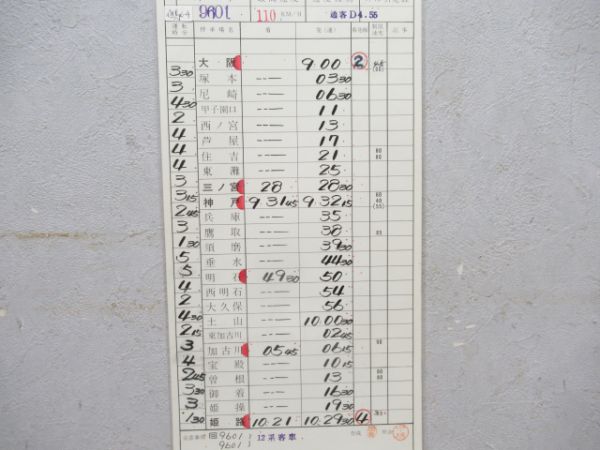 9601 110 KM/H 通客D4.55
運転時分 停車場名 着 発(通) 着発線 制限速度 記事
大阪 9.00 2 45
330 塚本 ‥― 0330
3 尼崎 ‥― 0630
430 甲子園口 ‥― 11
2 西ノ宮 ‥― 13
4 芦屋 ‥― 17
4 住吉 ‥― 21 60
4 東灘 ‥― 25
3 三ノ宮 28 2830
315 神戸 9.3145 9.3215
245 兵庫 ‥― 35
3 鷹取 ‥― 38
130 須磨 ‥― 3930
5 垂水 ‥― 4430
5 明石 4930 50
4 西明石 ‥― 54
2 大久保 ‥― 56
430 土山 ‥― 10.0030
215 東加古川 ‥― 0245
3 加古川 0545 0615
4 宝殿 ‥― 1015
245 曽根 ‥― 13
330 御着 ‥― 1630
3 姫操 ‥― 1930
130 姫路 10.21 10.2930 4
9601 12系客車
9601